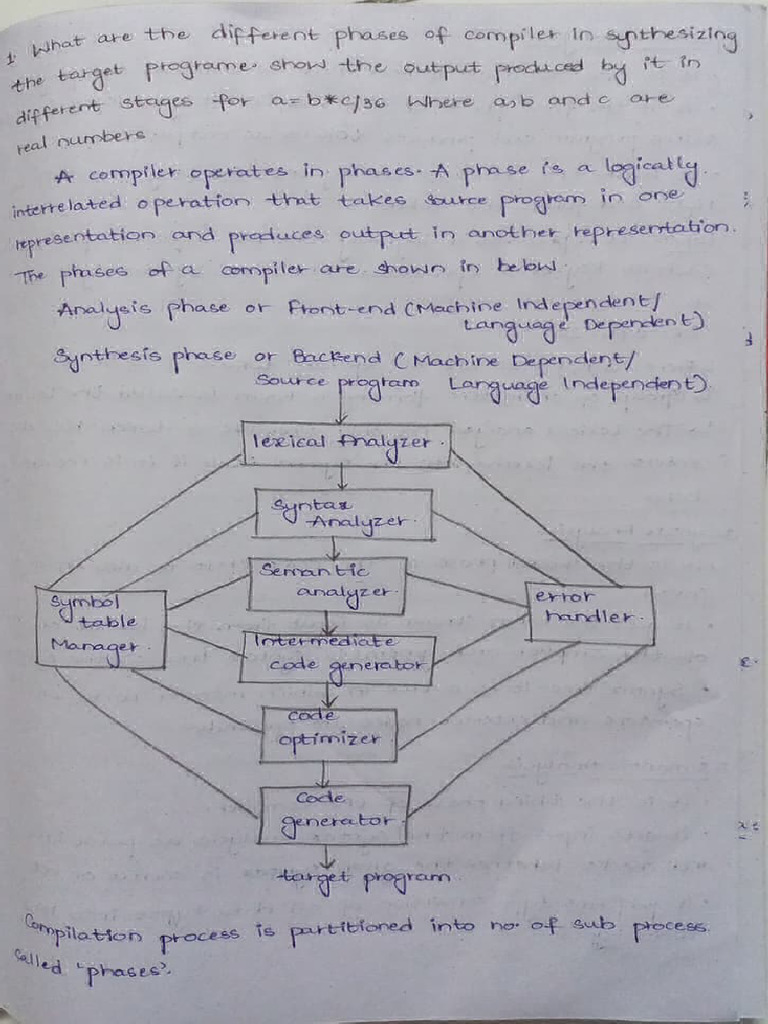 1. What are the different phases of compiler in synthesizing
the target programe. show the output produced by it in
different stages for a=b*c/36 Where a,b and c are
real numbers
A compiler operates in phases. A phase is a logically
interrelated operation that takes source program in one
representation and produces output in another representation.
The phases of a compiler are shown in below.
Analysis phase or Front-end (Machine Independent/
Language Dependent)
Synthesis phase or Backend (Machine Dependent/
Language Independent)
Source program
lexical Analyzer.
Syntax
Analyzer.
Semantic
analyzer.
Symbol
table
Manager.
error
handler.
Intermediate
code generator
code
optimizer
Code
generator
target program
Compilation process is partitioned into no. of sub process
called 'phases'.